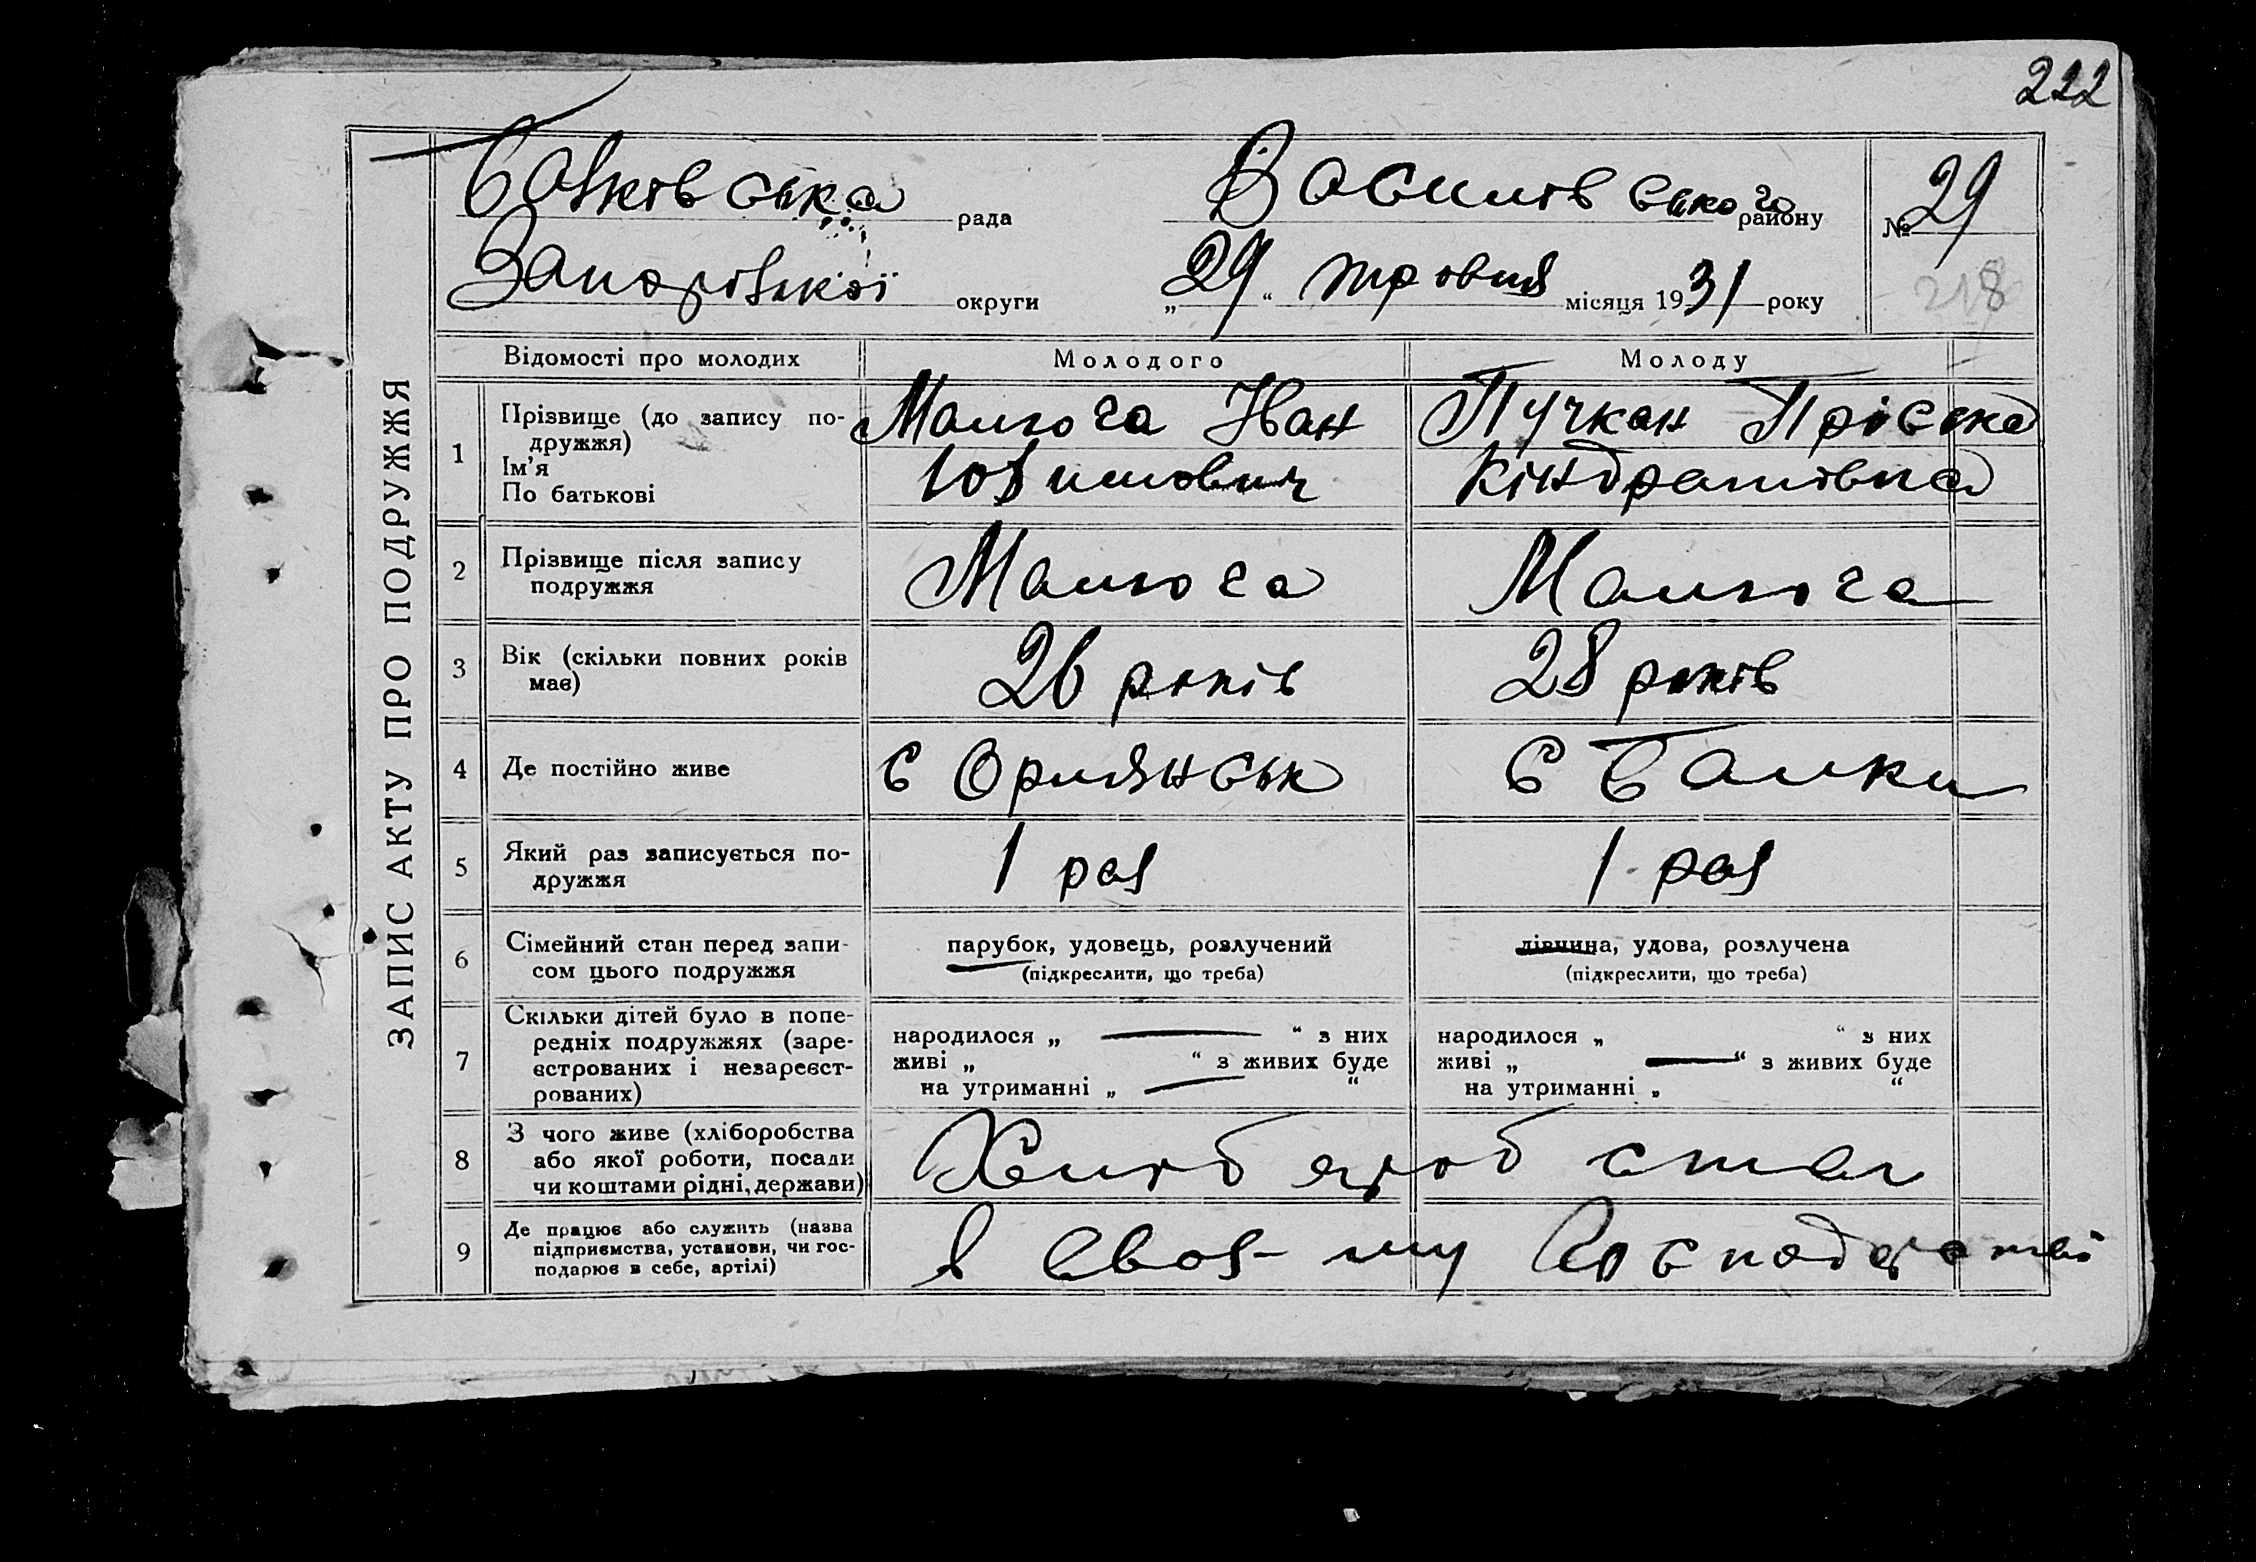 222
Балківська рада Василівського району № 29
Запорізької округи „29“ травня місяця 1931 року
218
ЗАПИС АКТУ ПРО ПОДРУЖЖЯ
Відомості про молодих Молодого Молоду
1 Прізвище (до запису подружжя) Малюга Іван Пучкан Пріська
Ім’я
По батькові Кіндратівна
2 Прізвище після запису Малюга Малюга
подружжя
3 Вік (скільки повних років 26 років 28 років
має)
4 Де постійно живе с Орлянськ с Балки
5 Який раз записується по- 1 раз 1 раз
дружжя
6 Сімейний стан перед запи- парубок, удовець, розлучений дівчина, удова, розлучена
сом цього подружжя (підкреслити, що треба) (підкреслити, що треба)
7 Скільки дітей було в попе-
редніх подружжях (заре- народилося „ — “ з них народилося „ “ з них
єстрованих і незареєст- живі „ “ з живих буде живі „ — “ з живих буде
рованих) на утриманні „ — “ на утриманні „ “
8 З чого живе (хліборобства Хліборобства
або якої роботи, посади
чи коштами рідні, держави)
9 Де працює або служить (назва в свої- му господарстві
підприємства, установи, чи гос-
подарює в себе, артілі)